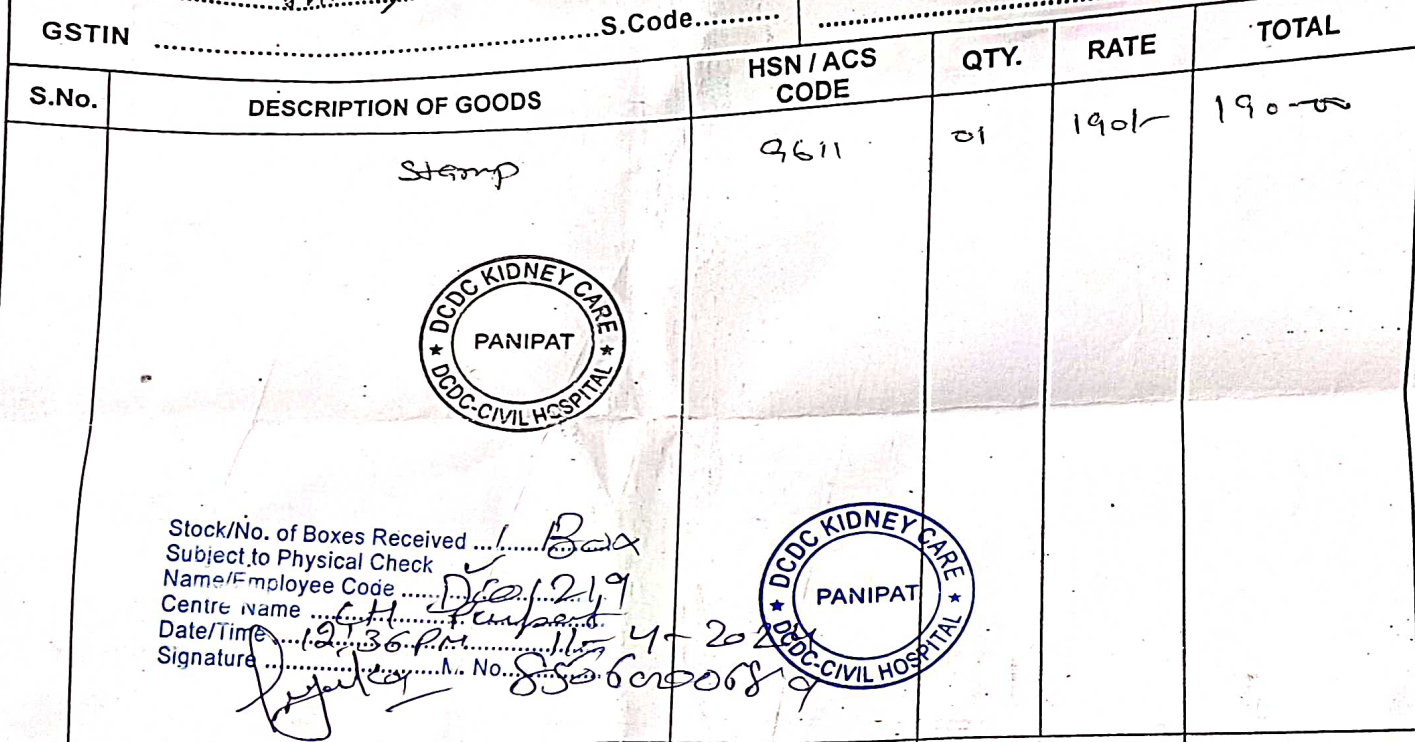 GSTIN ........................................S.Code..........
S.No. DESCRIPTION OF GOODS HSN / ACS CODE QTY. RATE TOTAL
Stamp 9611 01 190/- 190-00
DCDC KIDNEY CARE
PANIPAT
★ DCDC-CIVIL HOSPITAL ★
Stock/No. of Boxes Received ...1...... Box
Subject to Physical Check
Name/Employee Code ......
Centre Name ...CH
Date/Time....12:36 PM 11-4-
Signature ........................M. No.
DCDC KIDNEY CARE
PANIPAT
★ DCDC-CIVIL HOSPITAL ★